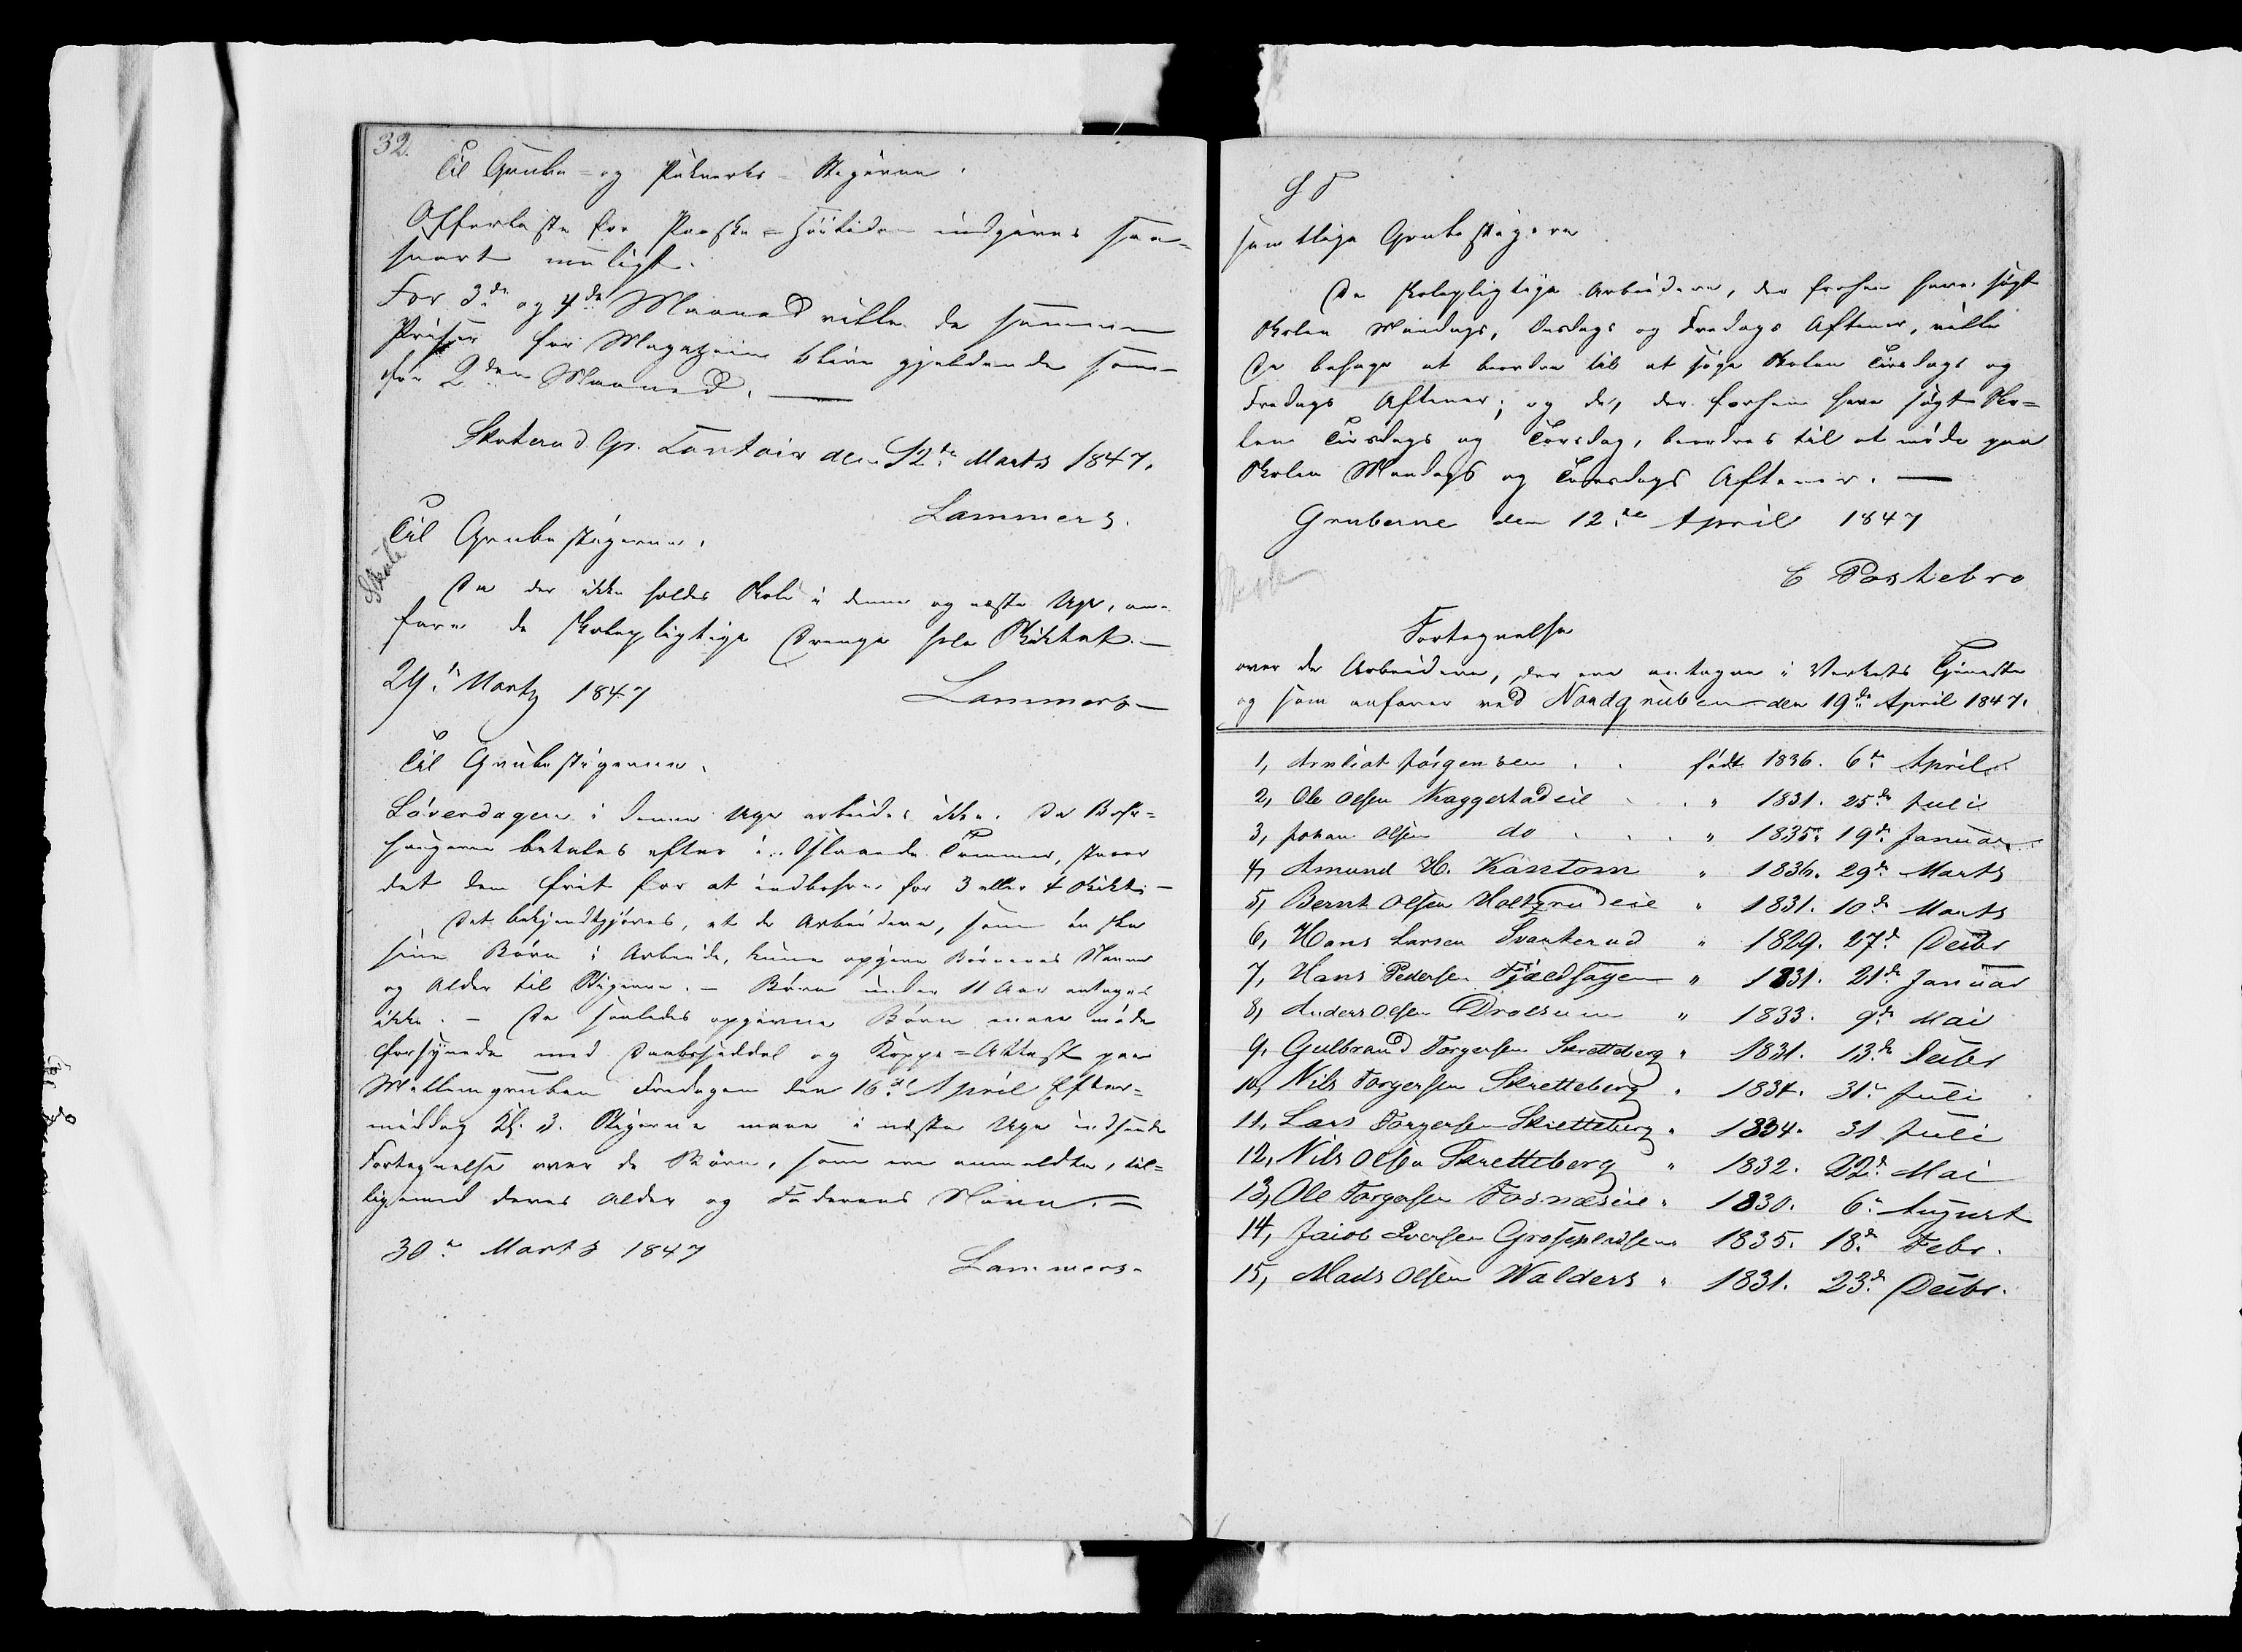 32.
Til Grube- og Pukverks-Stigerne.
Offerliste for Paaske-Høitiden indgives saa-
snart muligt.
For 3die og 4de Maaned ville de samme
Priser for Magazinet blive gjeldende som
for 2den Maaned. —
Skuterud Gr. Contoir den 12te Marts 1847.
Lammers.
Til Grubestigerne.
Skole
Da der ikke holdes Skole i denne og næste Uge, an-
fare de skolepligtige Drenge hele Skiktet. —
29de Martz 1847
Lammers —
Til Grubestigerne.
Løverdagen i denne Uge arbeides ikke. De Bore-
huggere betales efter Tommer, staaer
det dem frit for at indbore for 3 eller 4 Skikt. —
Det bekjendtgjøres, at de Arbeidere, som ønske
sine Børn i Arbeide, kunne opgive Børnenes Navne
og Alder til Stigerne. — Børn under 11 Aar antages
ikke. — De saaledes opgivne Børn maae møde
forsynede med Daabsseddel og Koppe-Attest paa
Mellemgruben Fredagen den 16de April Efter-
middag Kl. 3. Stigerne maae i næste Uge indsende
Fortegnelse over de Børn, som ere anmeldte, til-
ligemed deres Alder og Faderens Navn. —
30te Marts 1847
Lammers.
S T
samtlige Grubestigere
De skolepligtige Arbeidere, der forhen have søgt
Skolen Mandags, Onsdags og Fredags Aftener, ville
De behage at beordre til at søge Skolen Tirsdags og
Fredags Aftener; og de, der forhen have søgt Sko-
len Tirsdags og Torsdag, beordres til at møde paa
Skolen Mandags og Torsdags Aftener. —
Gruberne den 12te April 1847
C Pastebro
Skole
Fortegnelse
over de Arbeidere, der ere antagne i Verkets Tjeneste
og som anfarer ved Nordgruben den 19de April 1847.
1, Arnliot Jörgensen . . födt 1836. 6te April.
2, Ole Olsen Kaggestadeie . . " 1831. 25de Juli
3, Johan Olsen do . . . " 1835. 19de Januar.
4, Amund H. Kantom " 1836. 29de Marts
5, Bernt Olsen Holtzrudeie " 1831. 10de Marts
6, Hans Larsen Svarterud " 1829. 27d Decbr
7, Hans Pedersen Fjældhagen " 1831. 21de Januar
8, Anders Olsen Drolsum " 1833. 9de Mai
9, Gulbrand Torgersen Skretteberg " 1831. 13de Decbr
10, Nils Torgersen Skretteberg " 1834. 31te Juli
11, Lars Torgersen Skretteberg " 1834. 31 Juli
12, Nils Olsen Skretteberg " 1832. 22d Mai
13, Ole Torgersen Fosnæseie " 1830. 6te August
14, Jacob Iversen 1835. 18de Febr.
15, Mads Olsen Walders " 1831. 23de Decbr.